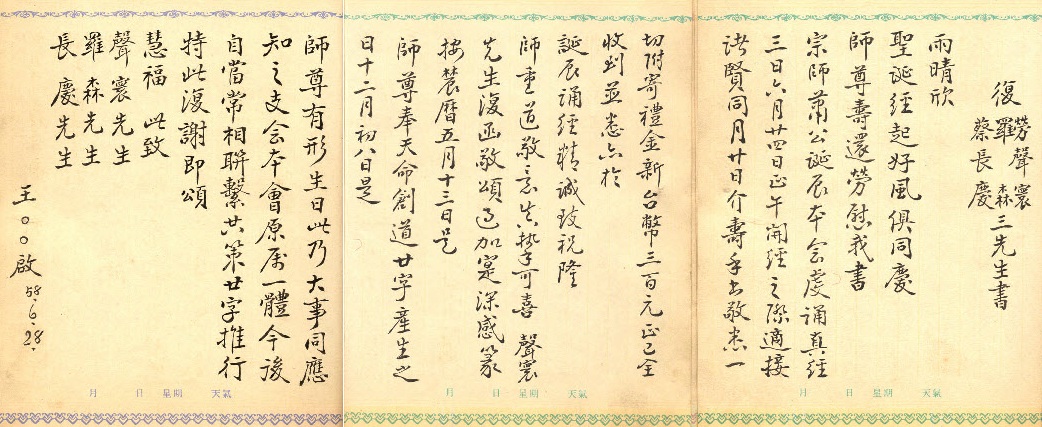 復
勞聲寰
羅 森
蔡長慶
三先生書
雨晴欣
聖誕經起好風俱同慶
師尊壽還勞慰我書
宗師蕭公誕辰本會虔誦真經
三日六月廿四日正午開經之際適接
諸賢同月廿日介壽手書敬悉一
切附寄禮金新台幣三百元正已全
收到並悉亦於
誕辰誦經精誠致祝隆
師重道敬意真摯可喜 聲寰
先生復函敬頌
深感篆
按農曆五月十三日是
師尊奉天命創道廿字產生之
日十二月初八日是
師尊有形生日此乃大事同應
知之支會本會原屬一體今後
自當常相聯繫共策廿字推行
特此復謝即頌
慧福 此致
聲寰先生
羅森先生
長慶先生
王○○啟 58.6.28.
月 日 星期 天氣
月 日 星期 天氣
月 日 星期 天氣